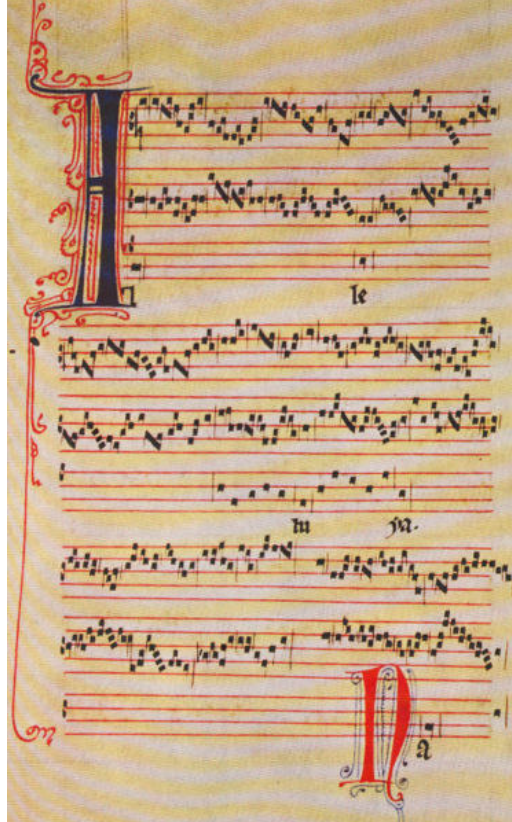 Al le
lu ya.
Na